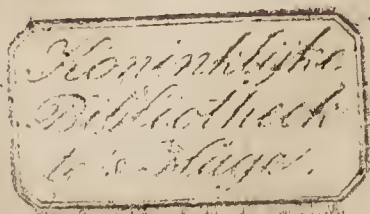 Koninklijke
Bibliotheek
te 's-Hage.